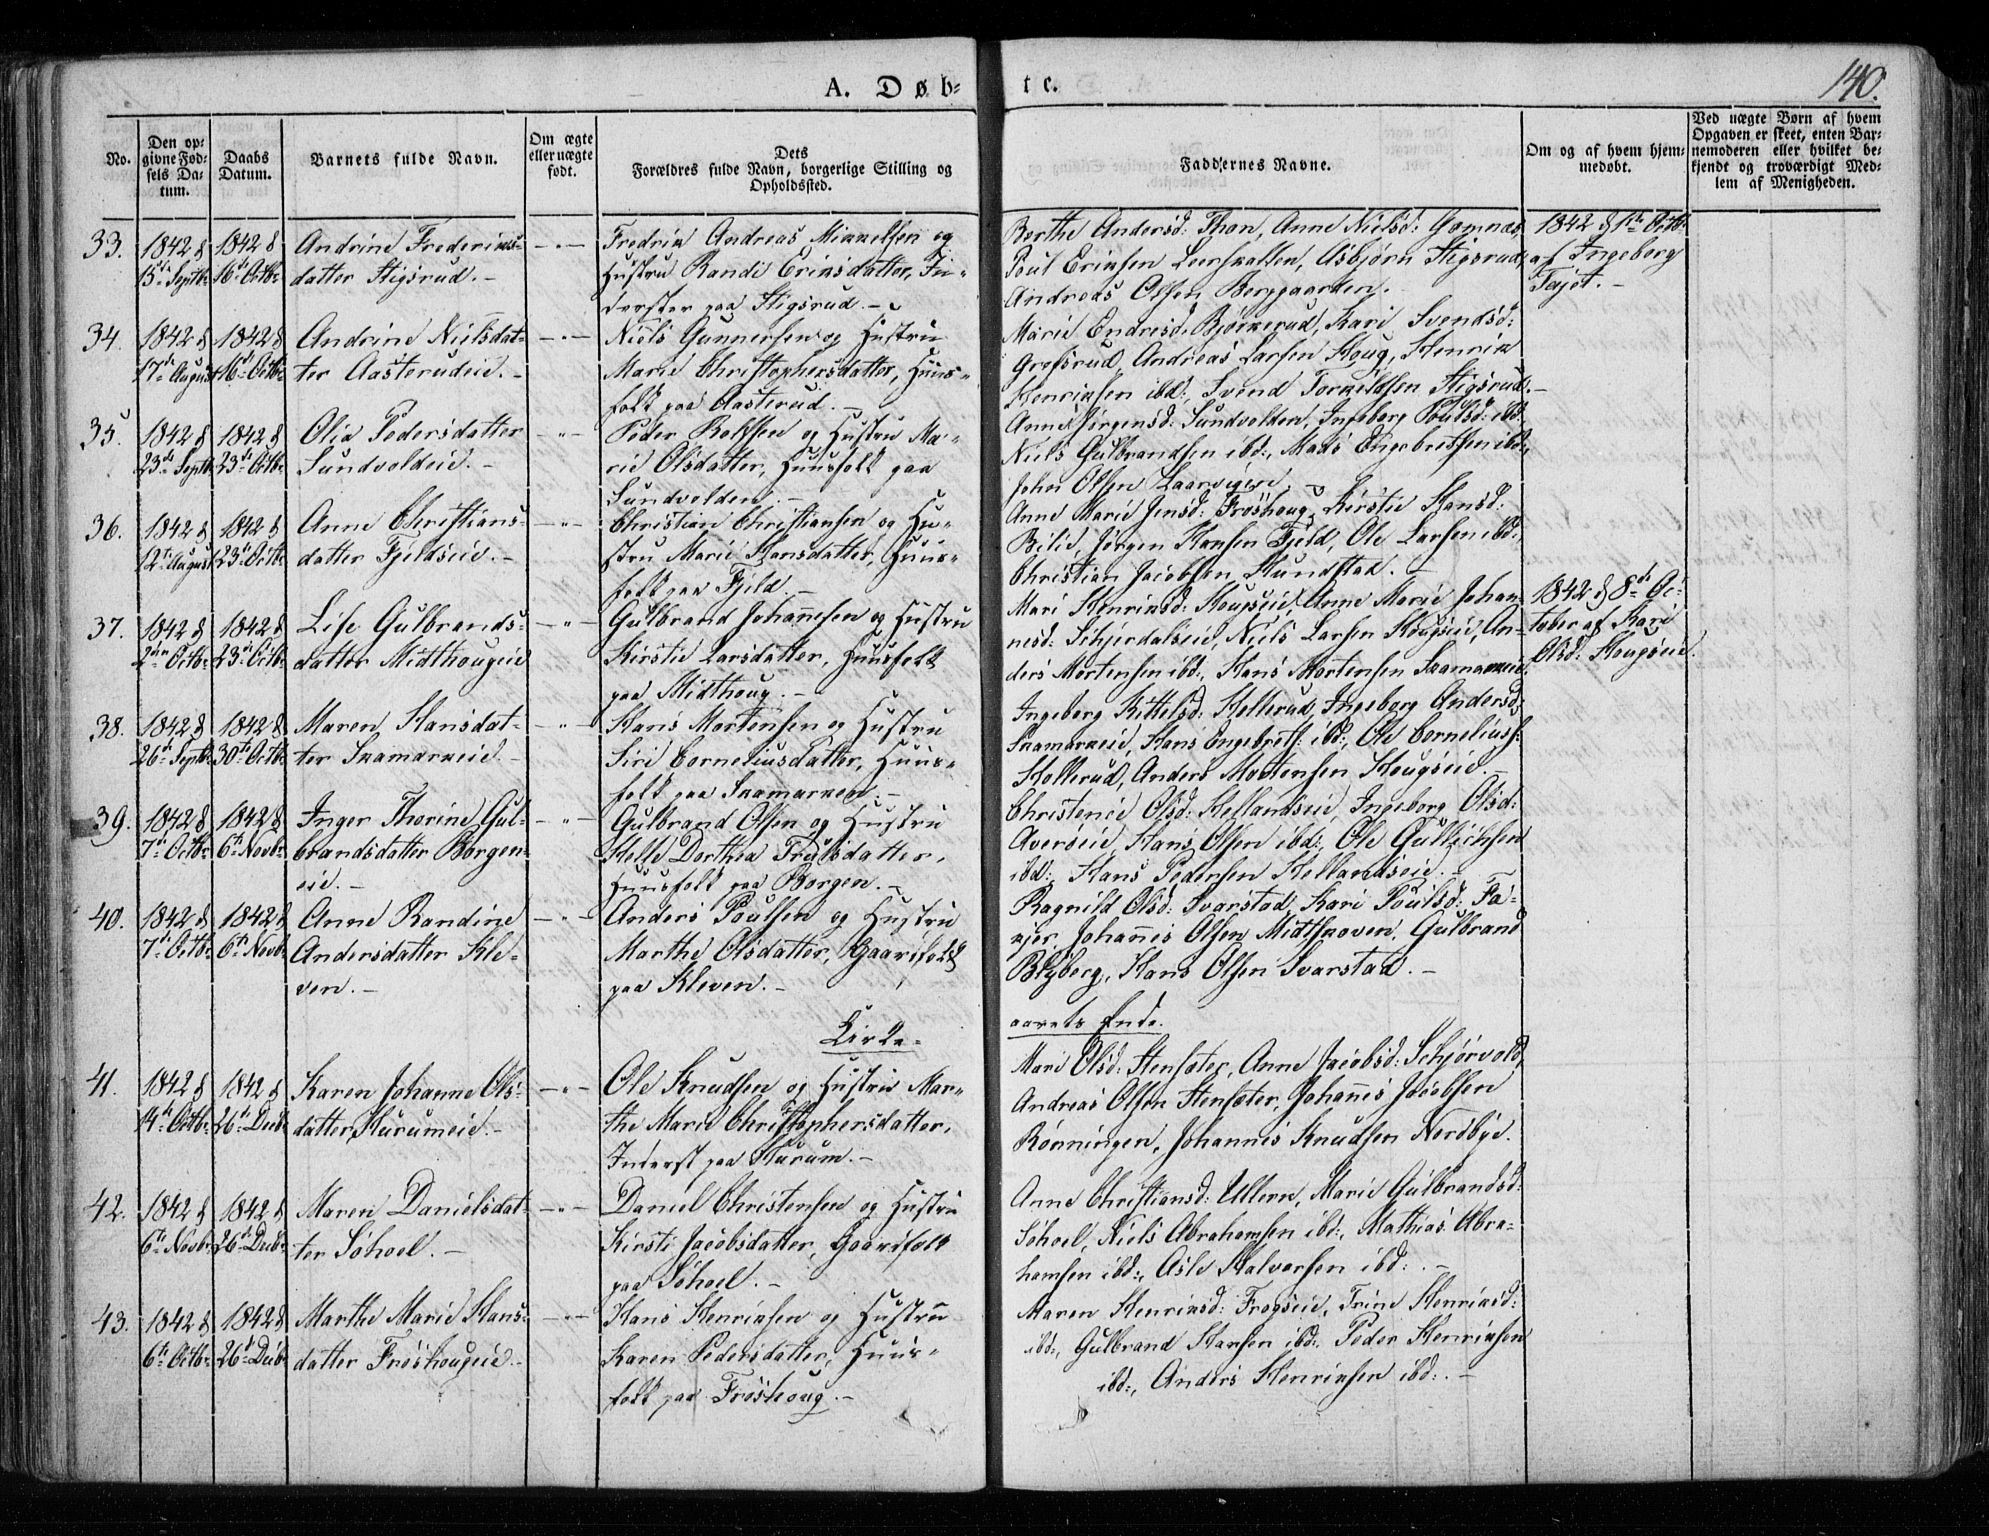 A. Døb-
te.
140.
No.
Den op-
givne Fød-
sels Da-
tum.
Daabs
Datum.
Barnets fulde Navn.
Om ægte
eller uægte
født.
Dets
Forældres fulde Navn, borgerlige Stilling og
Opholdssted.
Faddernes Navne.
Om og af hvem hjem-
medøbt.
Ved uægte Børn af hvem
Opgaven er skeet, enten Bar-
nemoderen eller hvilket be-
kjendt og troværdigt Med-
lem af Menigheden.
33.
1842 d
15de Septbr
1842 d
16de Octbr
Andrine Frederiks-
datter Stigsrud. -
- " -
Fredrik Andreas Mikkelsen og
Hustru Randi Eriksdatter, In-
derster paa Stigsrud. -
Berthe Andersd: Thon, Anne Nielsd: Gomnæs,
Poul Eriksen Leerskallen, Asbjørn Stigsrud,
Andreas Olsen Berggaarden. -
1842 d 1ste Octbr
af Ingeborg
Fajet. -
34.
1842 d
17de August
1842 d
16de Octbr
Andrine Nielsdat-
ter Aasterudeie. -
- " -
Niels Gunnersen og Hustru
Marie Christophersdatter, Huus-
folk paa Aasterud. -
Marie Endresd: Bjørkerud, Kari Svendsd:
Grefsrud, Andreas Larsen Houg, Henrik
Henriksen ibd:, Svend Torkildsen Stigsrud. -
35.
1842 d
23de Septbr
1842 d
23de Octbr
Olia Pedersdatter
Sundvoldeie. -
- " -
Peder Rolfsen og Hustru Ma-
rie Olsdatter, Huusfolk paa
Sundvolden. -
Anne Jørgensd: Sundvolden, Ingeborg Poulsd: ibd:,
Niels Gulbrandsen ibd:, Mads Engebretsen ibd:,
John Olsen Laarvigeie. -
36.
1842 d
12te August
1842 d
23de Octbr
Anne Christians-
datter Fjeldseie. -
- " -
Christian Christiansen og Hu-
stru Marie Hansdatter, Huus-
folk paa Fjeld. -
Anne Marie Jensd: Frøshoug, Kirstie Hansd:
Bilie, Jørgen Hansen Fjeld, Ole Larsen ibd:,
Christian Jacobsen Hundstad. -
37.
1842 d
2den Octbr
1842 d
23de Octbr
Lise Gulbrands-
datter Midthougeie
- " -
Gulbrand Johannesen og Hustru
Kirstie Larsdatter, Huusfolk
paa Midthoug. -
Mari Henriksd: Hougseie, Anne Marie Johan-
nesd: Schjerdalseie, Niels Larsen Hougseie, An-
ders Mortensen ibd:, Hans Mortensen Snamarkeie
1842 d 8de Oc-
tober af Kari
Olsd: Hougseie.
38.
1842 d
26de Septbr
1842 d
30te Octbr
Maren Hansdat-
ter Snamarkeie. -
- " -
Hans Mortensen og Hustru
Siri Corneliusdatter, Huus-
folk paa Snamarken. -
Ingeborg Kittelsd: Hollerud, Ingeborg Andersd:
Snamarkeie, Hans Engebrets: ibd:, Ole Corneliuss:
Hollerud, Anders Mortensen Hougseie. -
39.
1842 d
7de Octbr
1842 d
6te Novbr
Inger Thorine Gul-
brandsdatter Borgen-
eie. -
- " -
Gulbrand Olsen og Hustru
Helle Dorthea Trulsdatter,
Huusfolk paa Borgen. -
Christence Olsd: Hellandseie, Ingeborg Olsd:
Averøeie, Hans Olsen ibd:, Ole Gullichsen
ibd:, Hans Pedersen Hellandseie. -
40.
1842 d
7de Octbr
1842 d
6te Novbr
Anne Randine
Andersdatter Kle-
ven. -
- " -
Anders Poulsen og Hustru
Marthe Olsdatter, Gaardfolk
paa Kleven. -
Ragnild Olsd: Svarstad, Kari Poulsd: Fa-
kjer, Johannes Olsen Midtskoven, Gulbrand
Blyberg, Hans Olsen Svarstad. -
Kirke-
aarets Ende.
41.
1842 d
14de Octbr
1842 d
26de Decbr
Karen Johanne Ols-
datter Hurumeie. -
- " -
Ole Knudsen og Hustru Mar-
the Marie Christophersdatter,
Inderst paa Hurum. -
Mari Olsd: Stensæter, Anne Jacobsd: Schjørvold,
Andreas Olsen Stensæter, Johannes Jacobsen
Rønningen, Johannes Knudsen Nordbye.
42.
1842 d
6te Novbr
1842 d
26de Decbr
Maren Danielsdat-
ter Søhoel. -
- " -
Daniel Christensen og Hustru
Kirsti Jacobsdatter, Gaardfolk
paa Søhoel. -
Anne Christiansd: Ullern, Marie Gulbrandsd:
Søhoel, Niels Abrahamsen ibd:, Mathias Abra-
hamsen ibd:, Asle Halvorsen ibd:. -
43.
1842 d
6te Octbr
1842 d
26de Decbr
Marthe Marie Hans-
datter Frøshougeie. -
- " -
Hans Henriksen og Hustru
Karen Pedersdatter, Huus-
folk paa Frøshoug. -
Maren Henriksd: Frogseie, Trine Henriksd:
ibd:, Gulbrand Hansen ibd:, Peder Henriksen
ibd:, Anders Henriksen ibd:. -